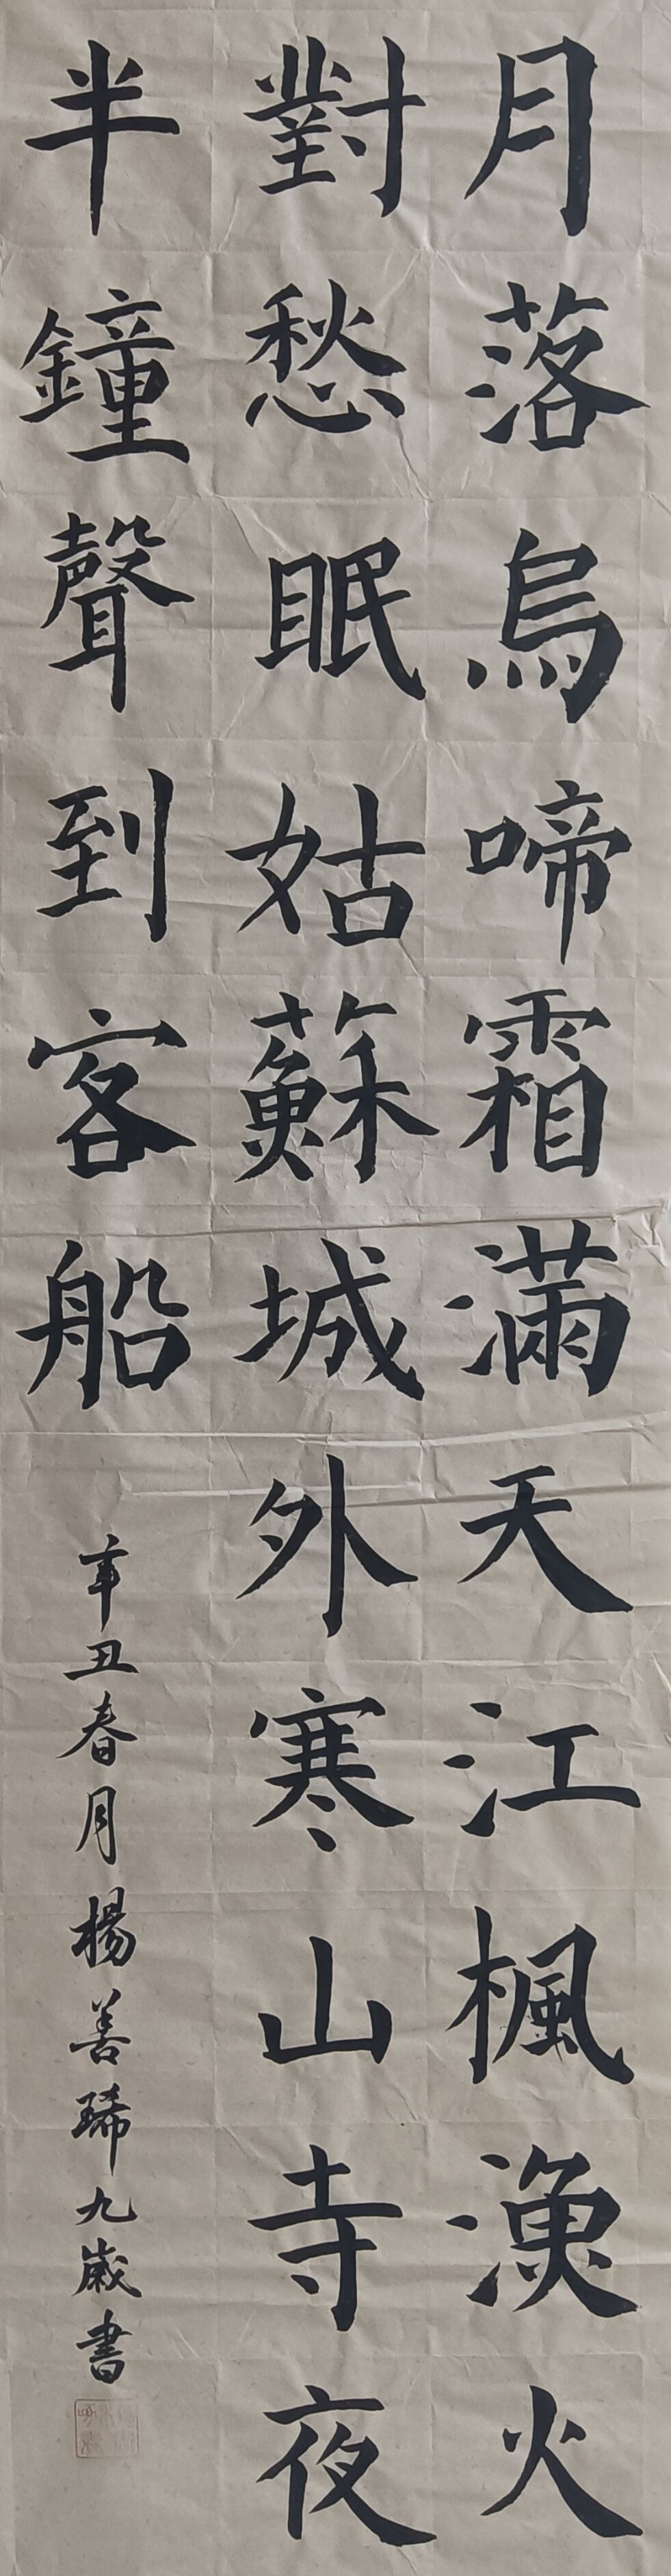 月落烏啼霜滿天江楓漁火
對愁眠姑蘇城外寒山寺夜
半鐘聲到客船
辛丑春月楊善琋九歲書